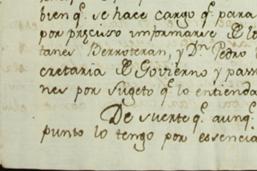 bien q.^ se hace cargo q.^ para
por preciso informarse el
tanes Berroteran, y Dⁿ Pedro
cretaria de Govierno y pass
nes por sugeto q.^ lo entienda
De suerte q.^ aunq.^
punto lo tengo por essencia